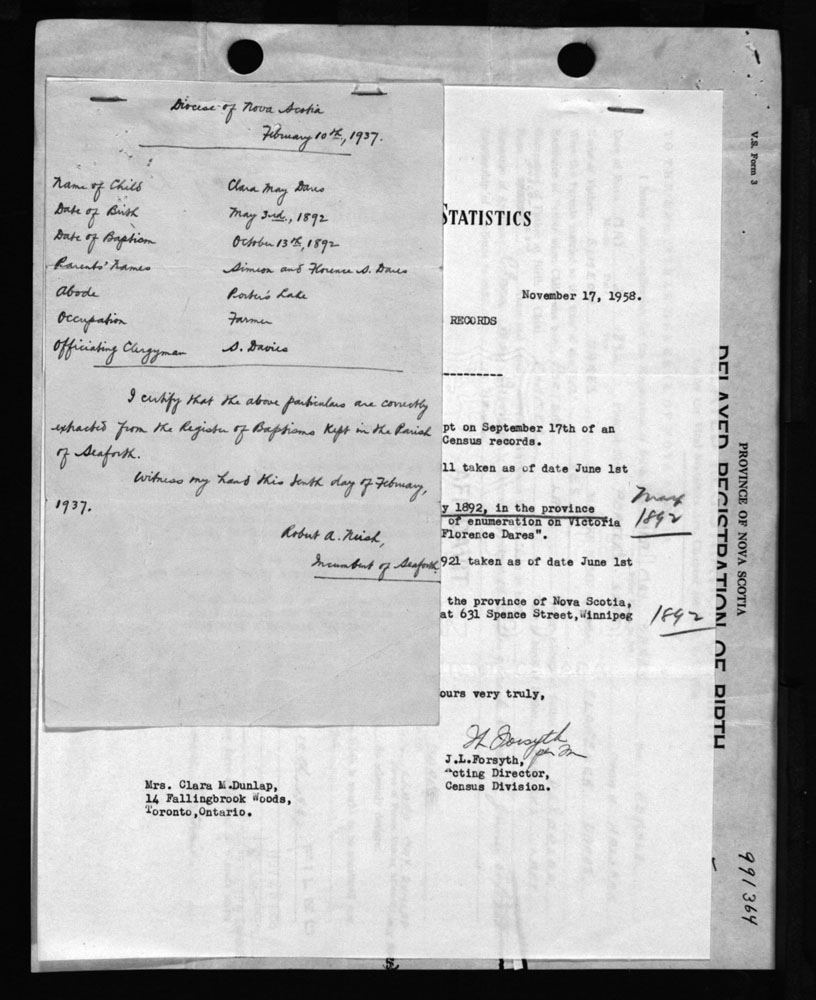 Diocese of Nova Scotia
February 10th, 1937.
Name of Child Clara May Dares
Date of Birth May 3rd., 1892
Date of Baptism October 13th, 1892
Parents' Names Simeon and Florence S. Dares
Abode Porter's Lake
Occupation Farmer
Officiating Clergyman S. Davies
I certify that the above particulars are correctly
extracted from the Register of Baptisms Kept in the Parish
of Seaforth.
Witness my hand this tenth day of February,
1937.
Robert A.
Incumbent of Seaforth.
STATISTICS
November 17, 1958.
RECORDS
----------
pt on September 17th of an
Census records.
ll taken as of date June 1st
y 1892, in the province
of enumeration on Victoria
Florence Dares".
May
1892
921 taken as of date June 1st
the province of Nova Scotia,
at 631 Spence Street,Winnipeg
1892
ours very truly,
J.L.Forsyth,
Acting Director,
Census Division.
Mrs. Clara M.Dunlap,
14 Fallingbrook Woods,
Toronto,Ontario.
V.S. Form 3
PROVINCE OF NOVA SCOTIA
DELAYED REGISTRATION OF BIRTH
991364